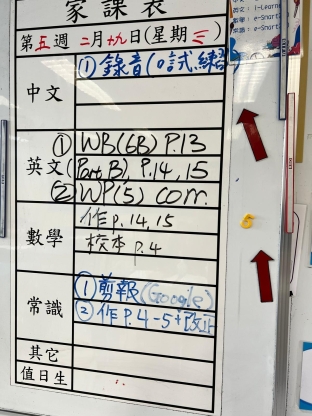 家課表
第五週 二月十九日(星期三)
中文
①錄音(口試練習)
英文
① WB(6B) P.13
(Part B), P.14, 15
② WP(5) com.
數學
作 P. 14, 15
校本 P. 4
常識
①剪報(Google)
②作 P. 4-5+改正
其它
值日生